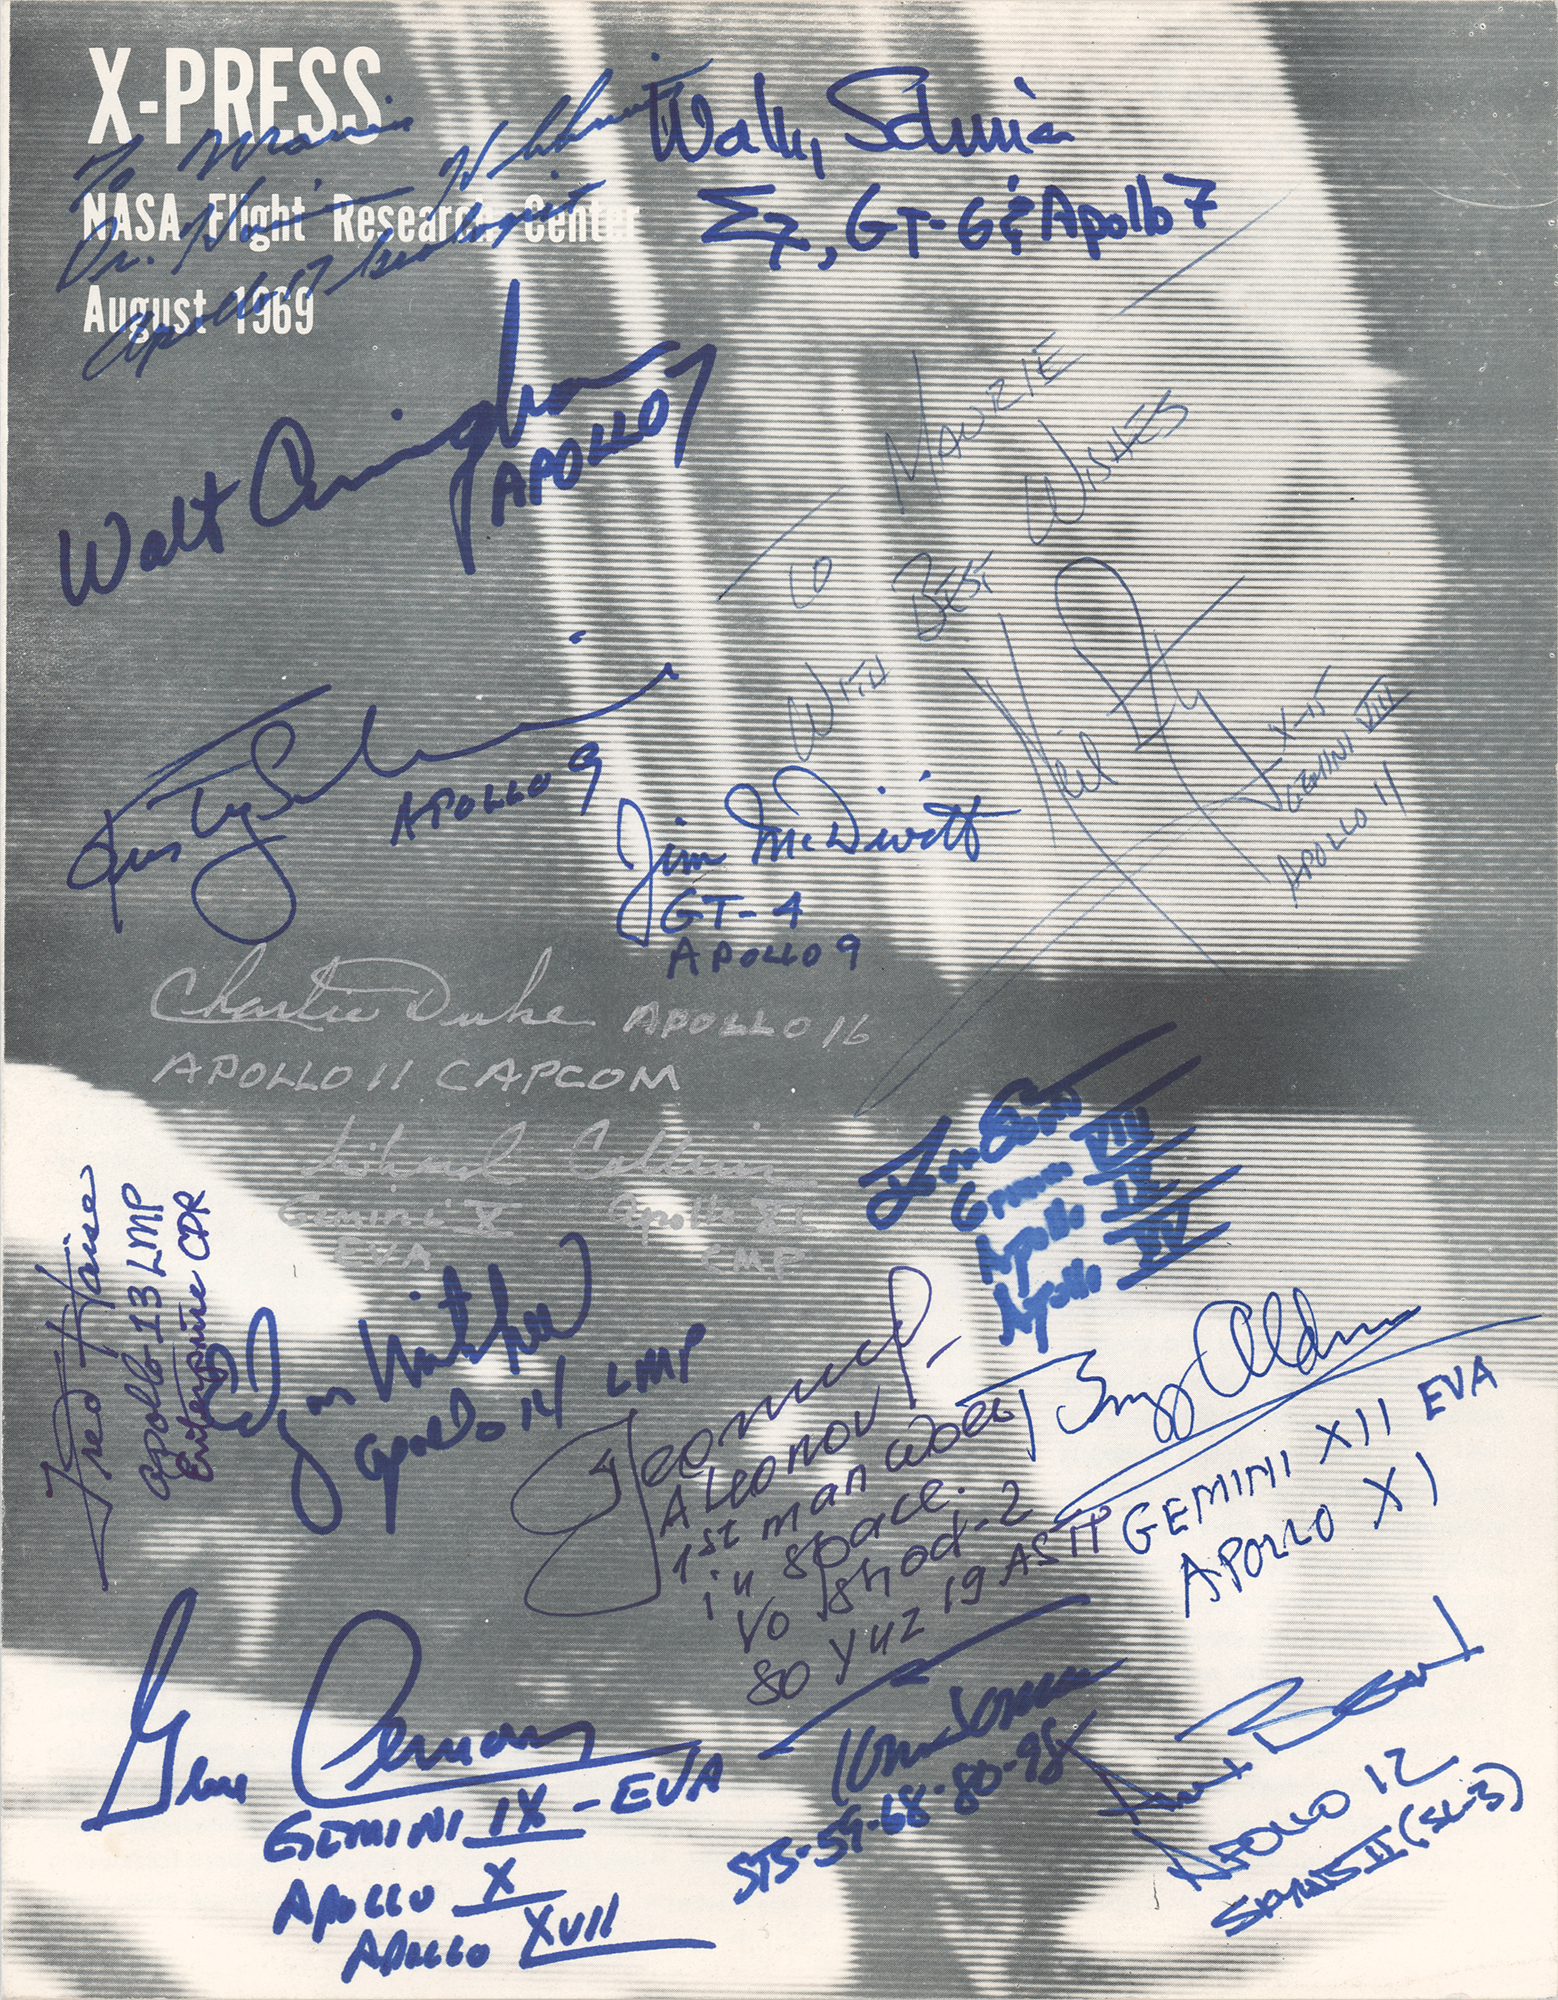 X-PRESS
NASA Flight Research Center
August 1969
To Maurie
Dr. H Schmitt
Apollo 17 Geologist
Wally Schirra
Σ7, GT-6 & Apollo 7
Walt Cunningham
APOLLO 7
TO MAURIE
WITH BEST WISHES
Neil
X-15
GEMINI VIII
APOLLO 11
APOLLO 9
Jim McDivitt
GT-4
APOLLO 9
Charlie Duke APOLLO 16
APOLLO 11 CAPCOM
Michael Collins
GEMINI X Apollo XI
EVA CMP
Fred Haise
Apollo-13 LMP
Enterprise CDR
Gemini VII
Apollo IX
Apollo XV
Edgar Mitchell
Apollo 14 LMP
Aleonov
1st man
in space.
Voshod-2
Soyuz 19 ASTP
Buzz Aldrin
GEMINI XII EVA
APOLLO XI
Gene Cernan
GEMINI IX - EVA
APOLLO X
APOLLO XVII
STS-59-68-80-98
Bean
APOLLO 12
(SL-3)